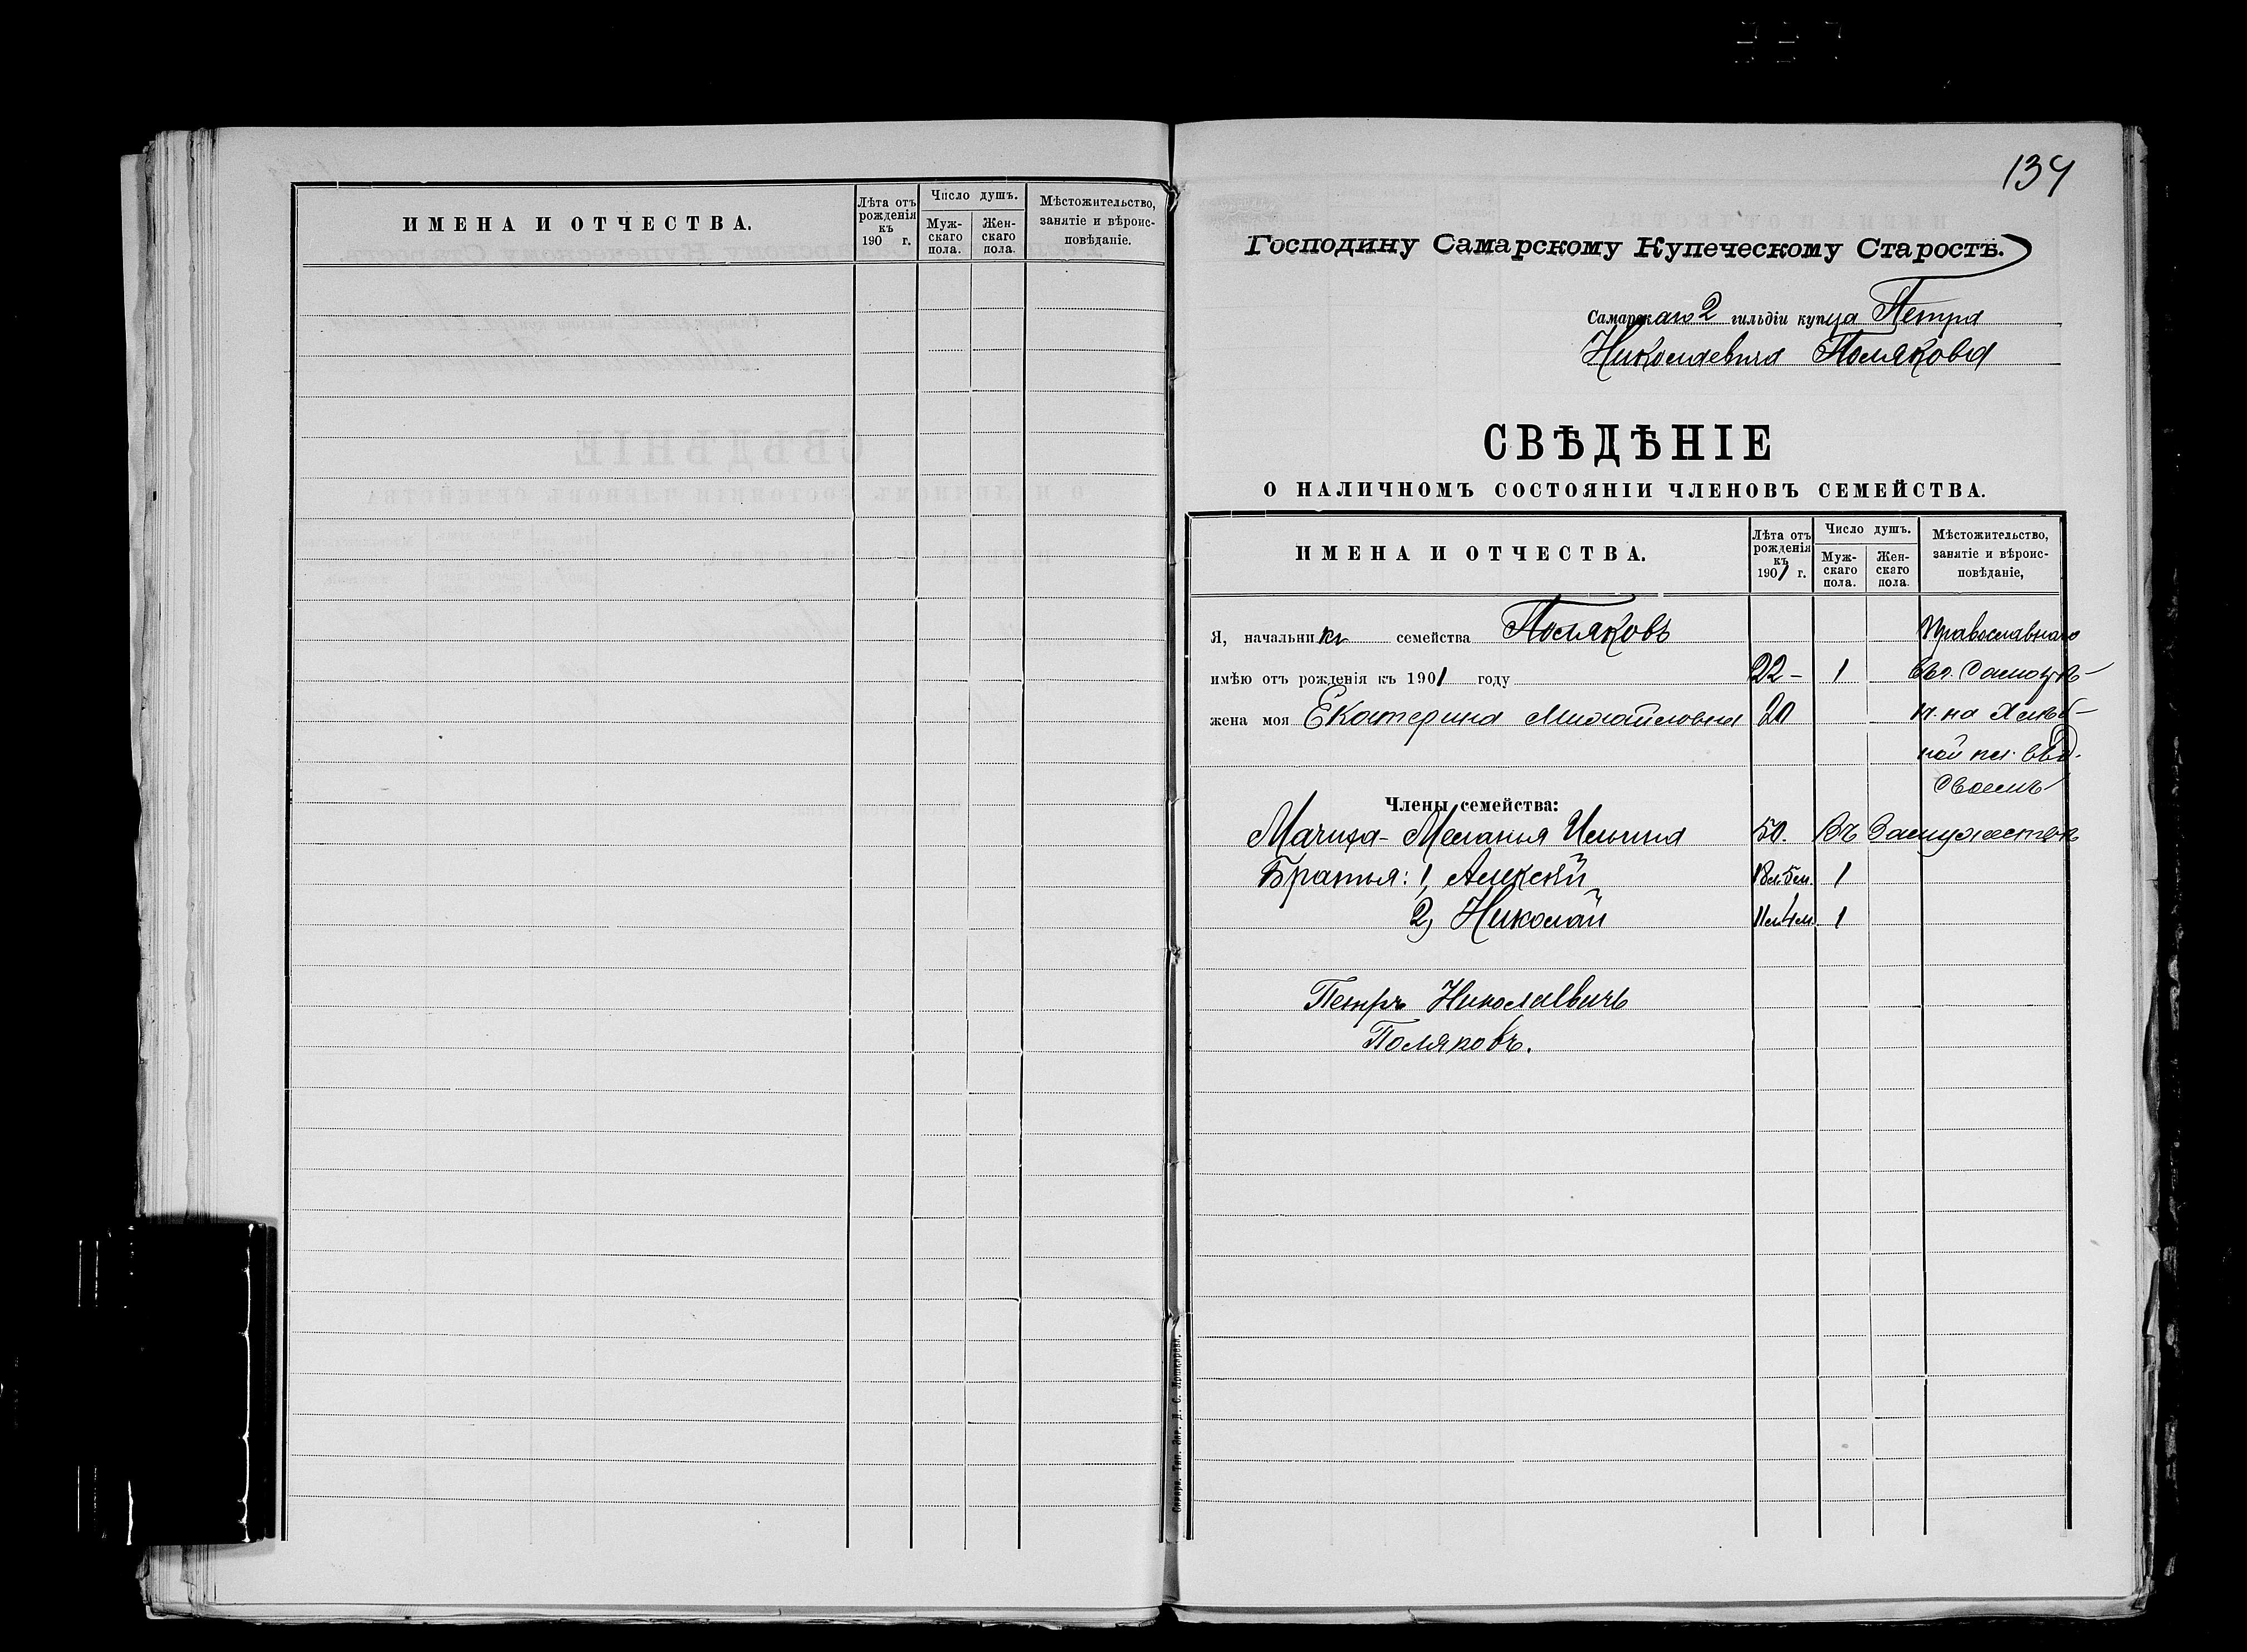 ИМЕНА И ОТЧЕСТВА.
Лѣта отъ рожденія къ 190 г.
Число душъ.
Мужскаго пола.
Женскаго пола.
Мѣстожительство, занятіе и вѣроисповѣданіе.
134
Господину Самарскому Купеческому Старостѣ.
Самарскаго 2 гильдіи купца Петра
Николаевича Полякова
СВѢДѢНІЕ
О НАЛИЧНОМЪ СОСТОЯНІИ ЧЛЕНОВЪ СЕМЕЙСТВА.
ИМЕНА И ОТЧЕСТВА.
Лѣта отъ рожденія къ 1901 г.
Число душъ.
Мужскаго пола.
Женскаго пола.
Мѣстожительство, занятіе и вѣроисповѣданіе,
Я, начальникъ семейства Поляковъ Православнаго
имѣю отъ рожденія къ 1901 году 22 1
жена моя Екатерина Михайловна 20 на Хлѣб-
ной пл. въ д.
своемъ
Члены семейства:
Мачиха - Меланья Ильина 50. Въ Замужествѣ
Братья: 1, Алексѣй 18 л. 5 м. 1
2, Николай 11 л. 4 м. 1
Петръ Николаевичъ
Поляковъ.